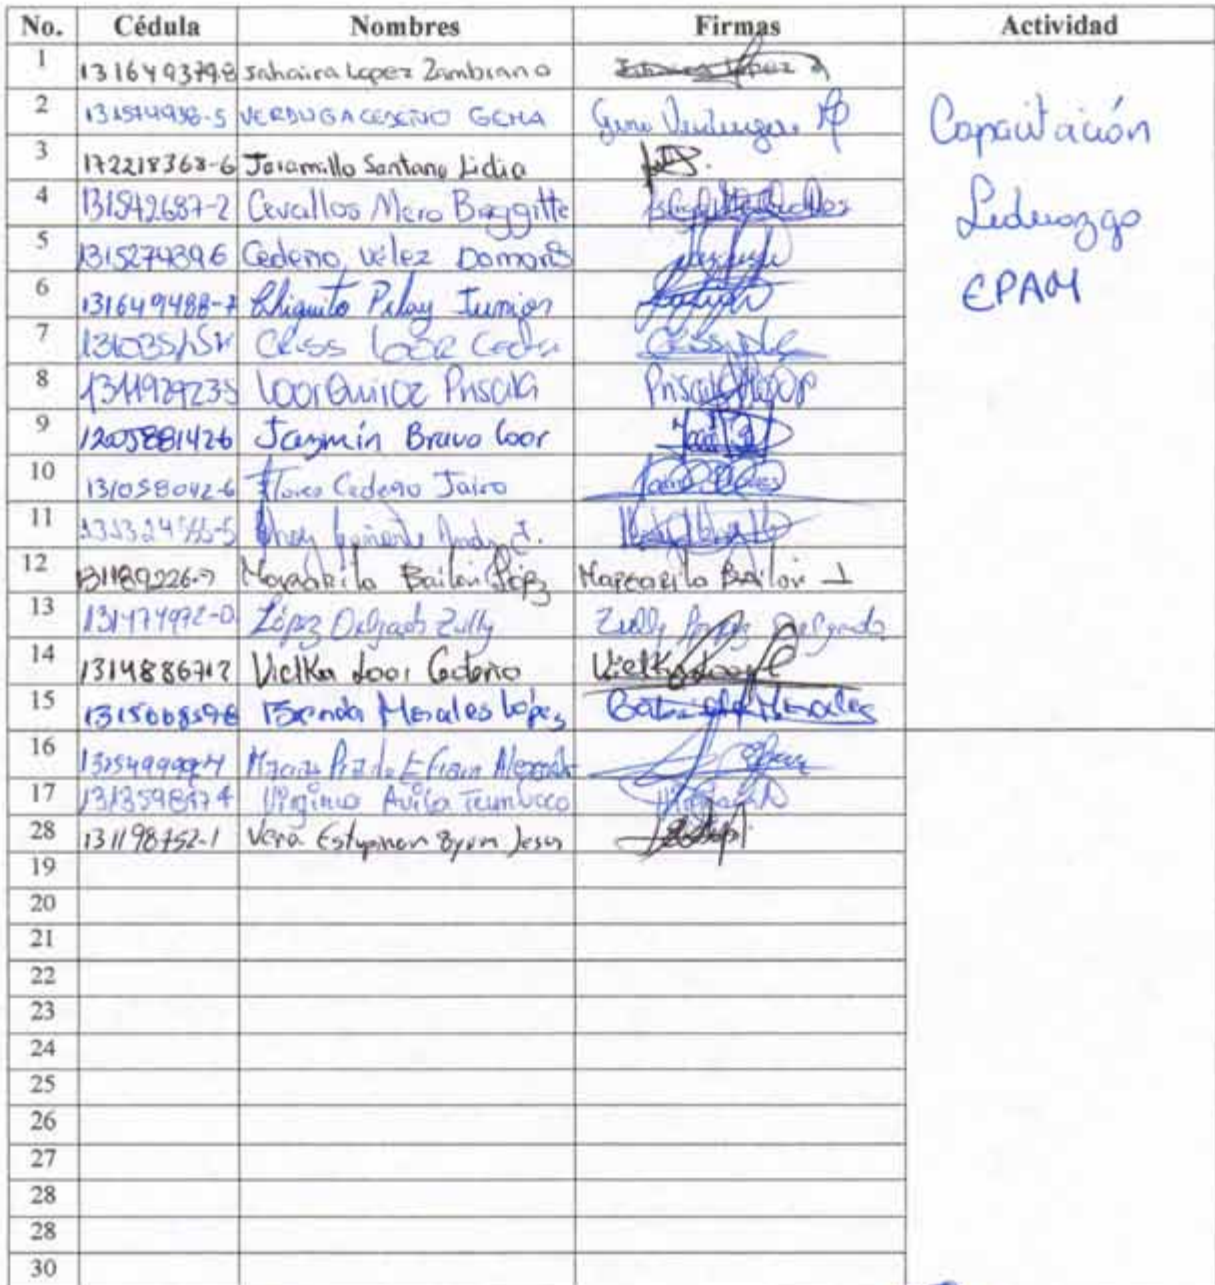 No. Cédula Nombres Firmas Actividad
1 131649379-8 Jahaira Lopez Zambrano
2 131574938-5 VERDUGA CEDEÑO GEMA
Capacitación
3 172218368-6 Jaramillo Santana Lidia
4 131542687-2 Cevallos Mero Briggitte
Liderazgo
5 1315274396 Cedeño Vélez Domonis
6 131649488-7 Chiquito Pilay Junior
EPAM
7 Criss Loor
8 1311929235 Loor Quiroz Priscila Priscila Loor
9 1205881426 Jazmín Bravo Loor
10 131058042-6 Flores Cedeño Jairo
11
12 131189226-7 Margarita Bailon López Margarita Bailon L
13 131474972-0 López Delgado Zully Zully López Delgado
14 1314886712 Vielka Loor Cedeño Vielka Loor
15 Brenda Morales López Morales
16 Macias
17 1313598474 Virginia Avila
28 131198752-1 Vera Estupinan Byron Jesus
19
20
21
22
23
24
25
26
27
28
28
30